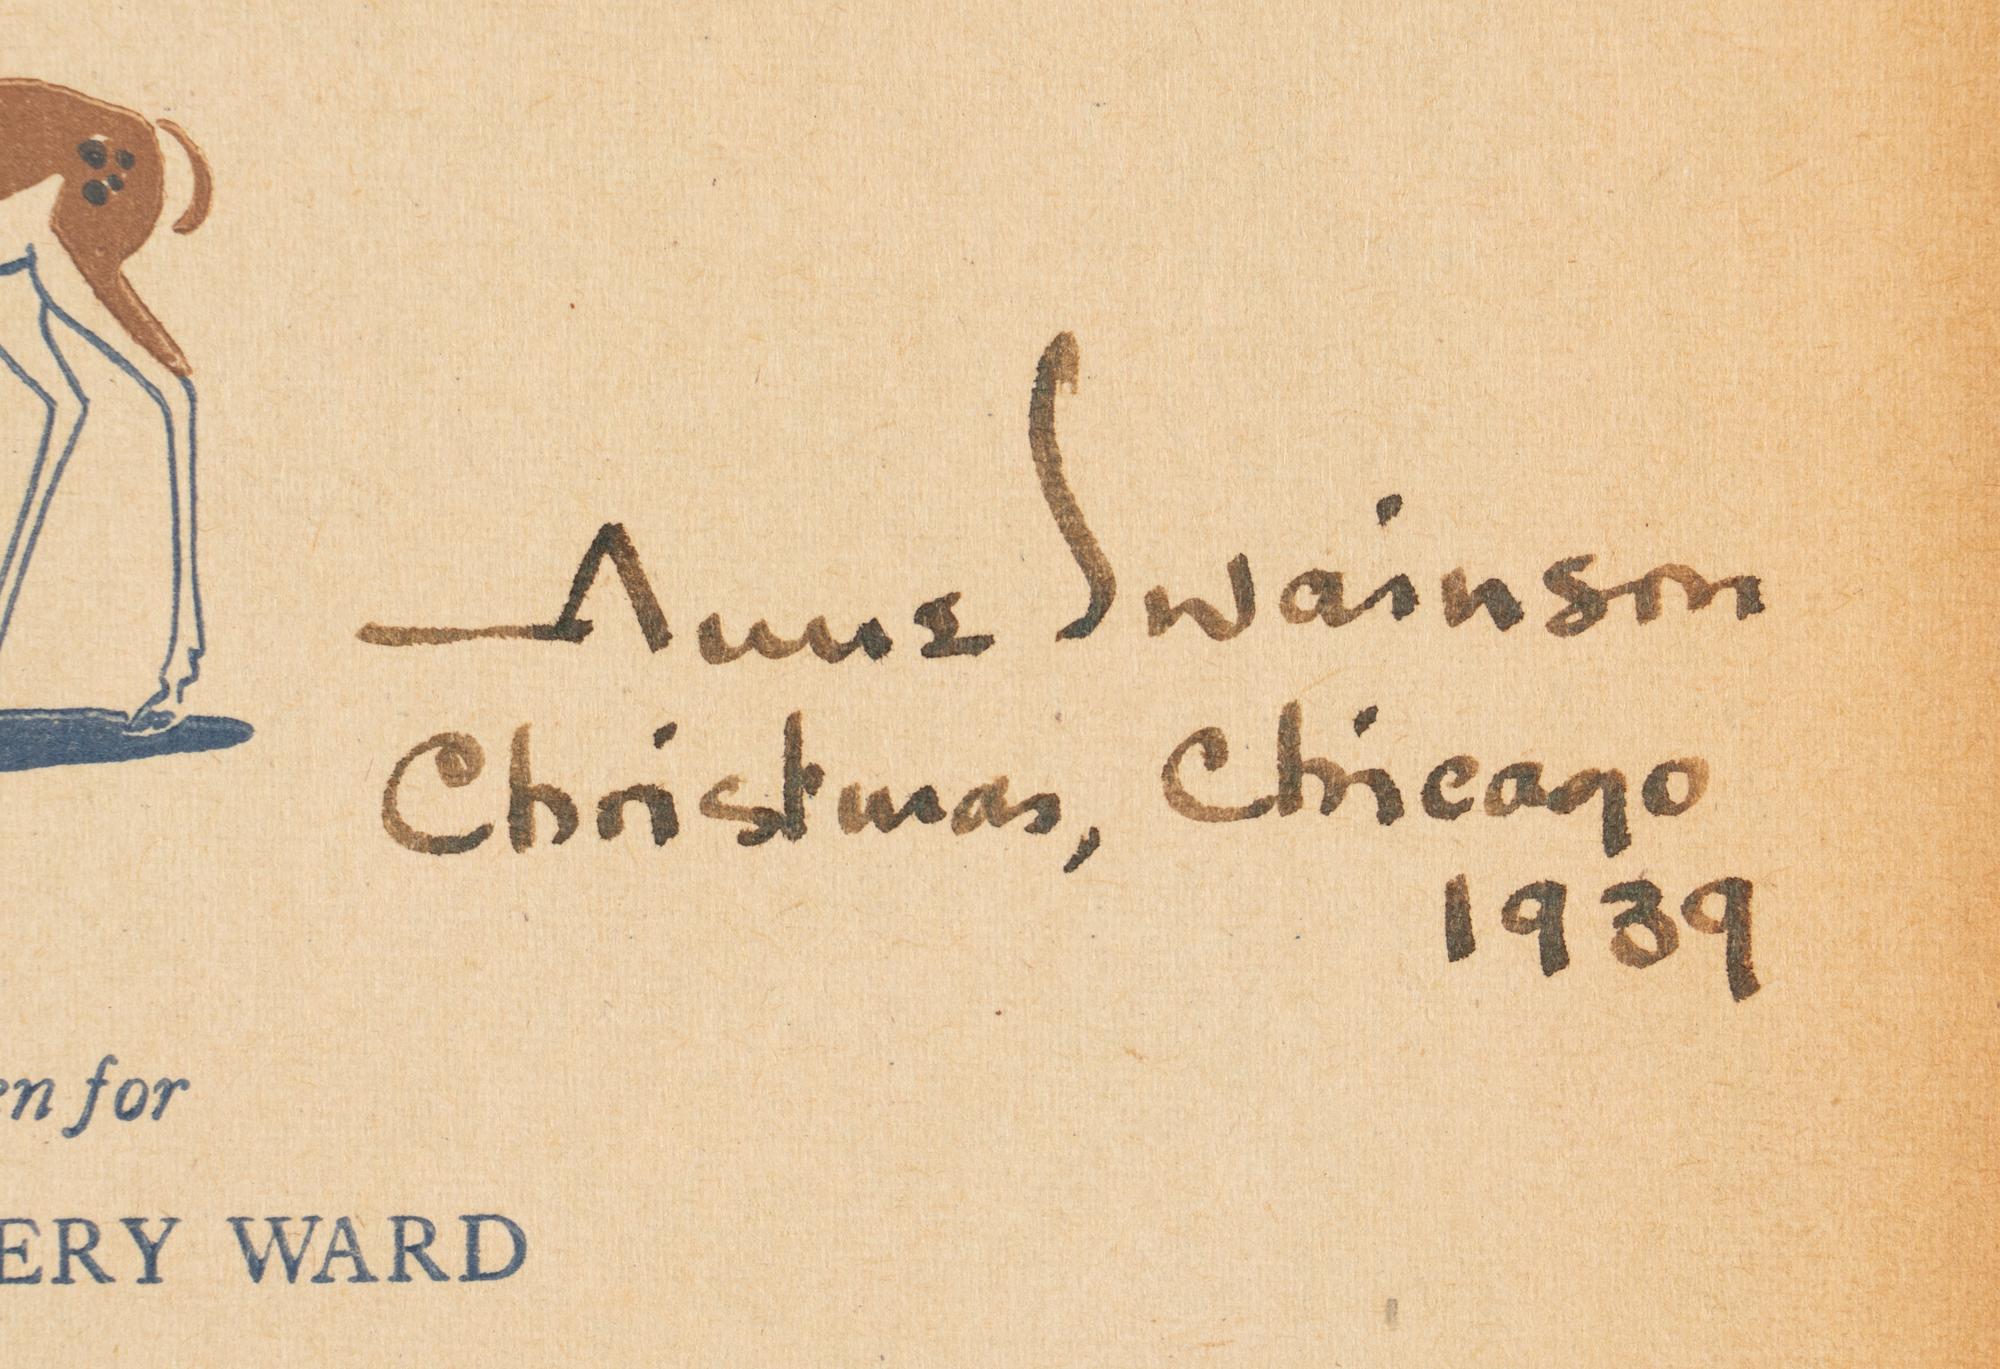 —Anne Swainson
Christmas, Chicago
1939
en for
ERY WARD